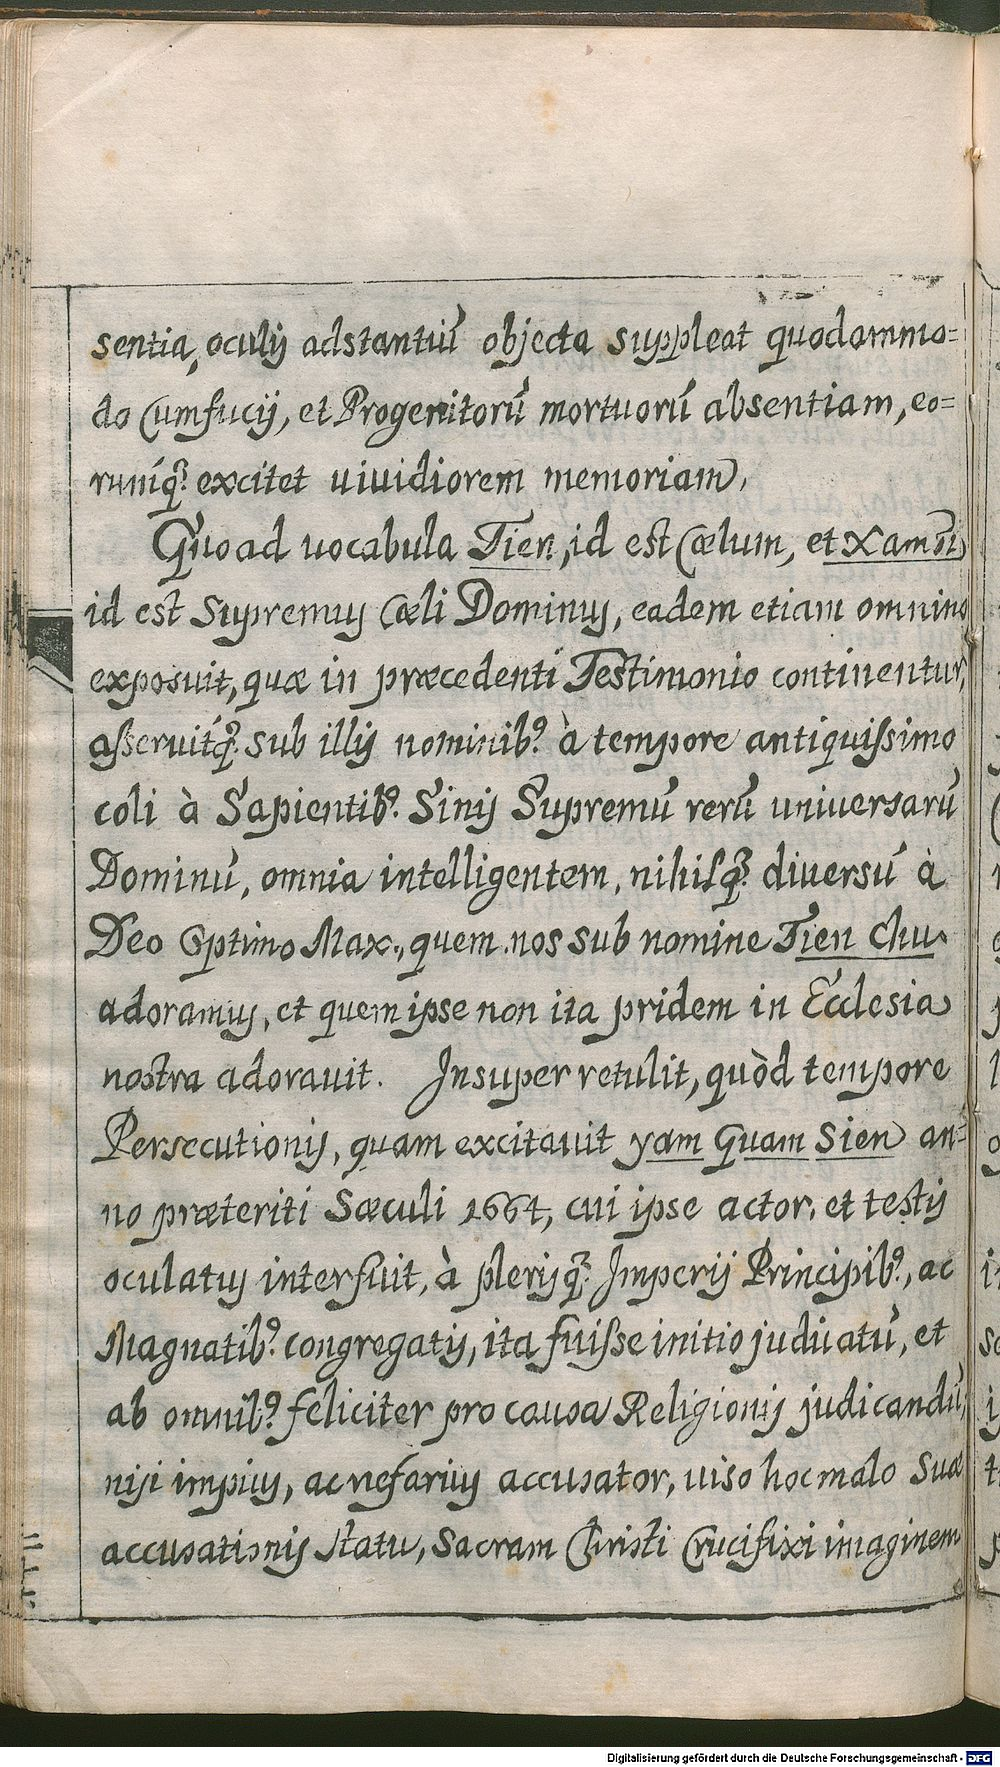 sentia, oculis adstantiũ objecta suppleat quodammo=
do Cumfucij, et Progenitorũ mortuorũ absentiam, eo=
rumq́ꝫ excitet viuidiorem memoriam.
Quoad vocabula Tien, id est Cœlum, et Xam ti
id est Supremus Cœli Dominus, eadem etiam omnino
exposuit, quæ in præcedenti Testimonio continentur,
asseruitq́ꝫ sub illis nominib9 à tempore antiquissimo
coli à Sapientib9 Sinis Supremũ rerũ universarũ
Dominũ, omnia intelligentem, nihilqꝫ diversũ à
Deo Optimo Max., quem nos sub nomine Tien Chu
adoramus, et quem ipse non ita pridem in Ecclesia
nostra adoravit. Insuper retulit, quòd tempore
Persecutionis, quam excitavit yam Quam Sien an=
no præteriti Sæculi 1664, cui ipse actor, et testis
oculatus interfuit, à plerisqꝫ Imperij Principib9, ac
Magnatib9 congregatis, ita fuisse initio judicatũ, et
ab omnib9 feliciter pro causa Religionis judicandũ,
nisi impius, ac nefarius accusator, viso hoc malo suæ
accusationis statu, Sacram Christi Crucifixi imaginem
Digitalisierung gefördert durch die Deutsche Forschungsgemeinschaft - DFG